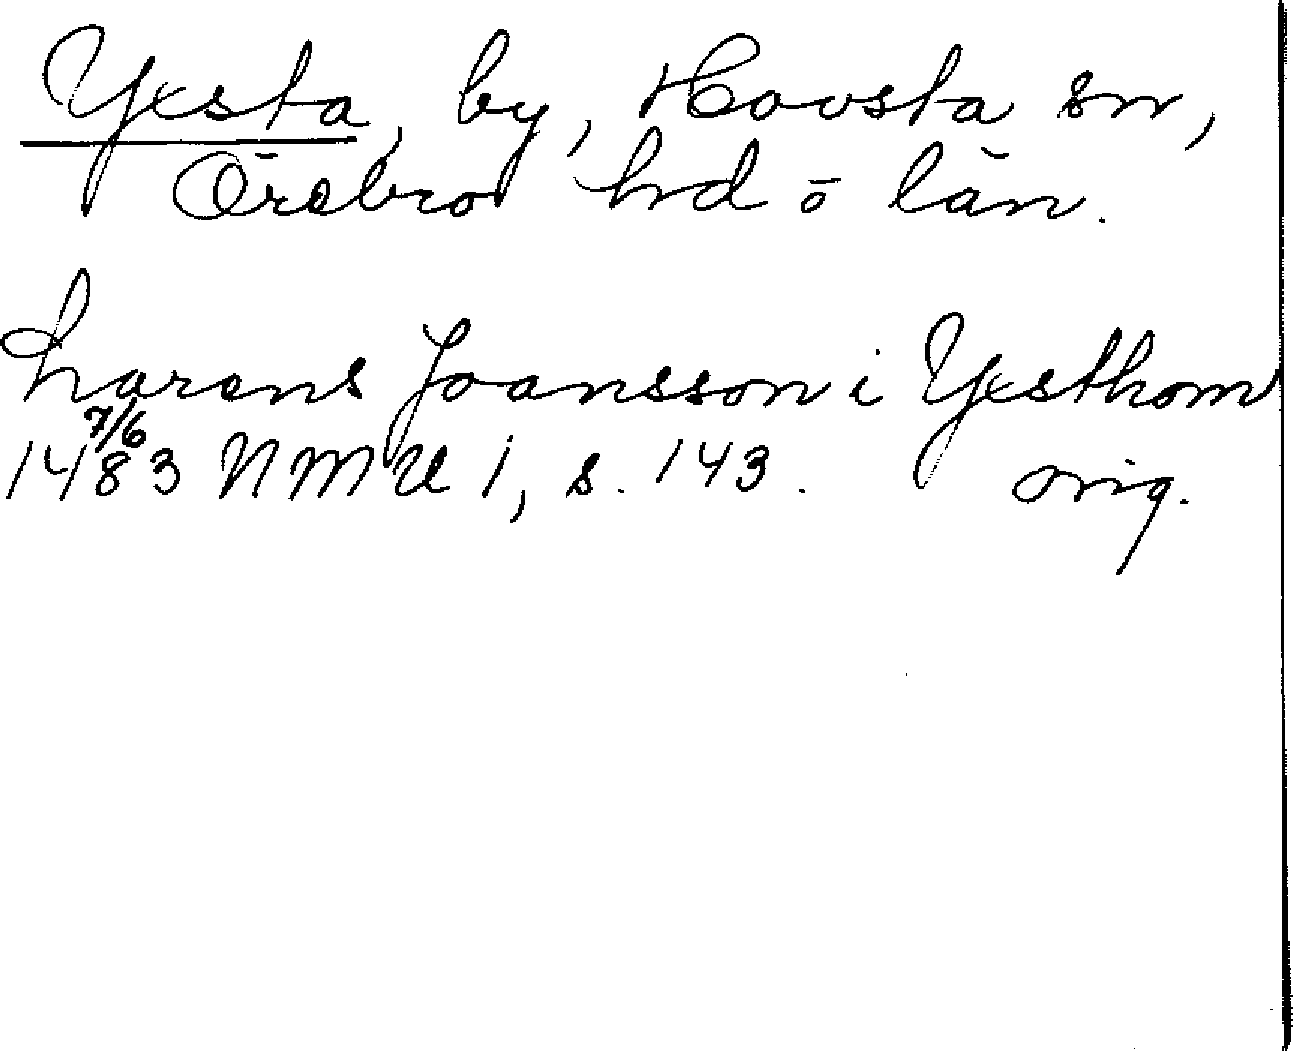 Yxsta, by, Hovsta sn,
Örebro hd ō län.
Larens Joansson i Yxsthom
7/6
1483 NMU 1, s. 143. orig.